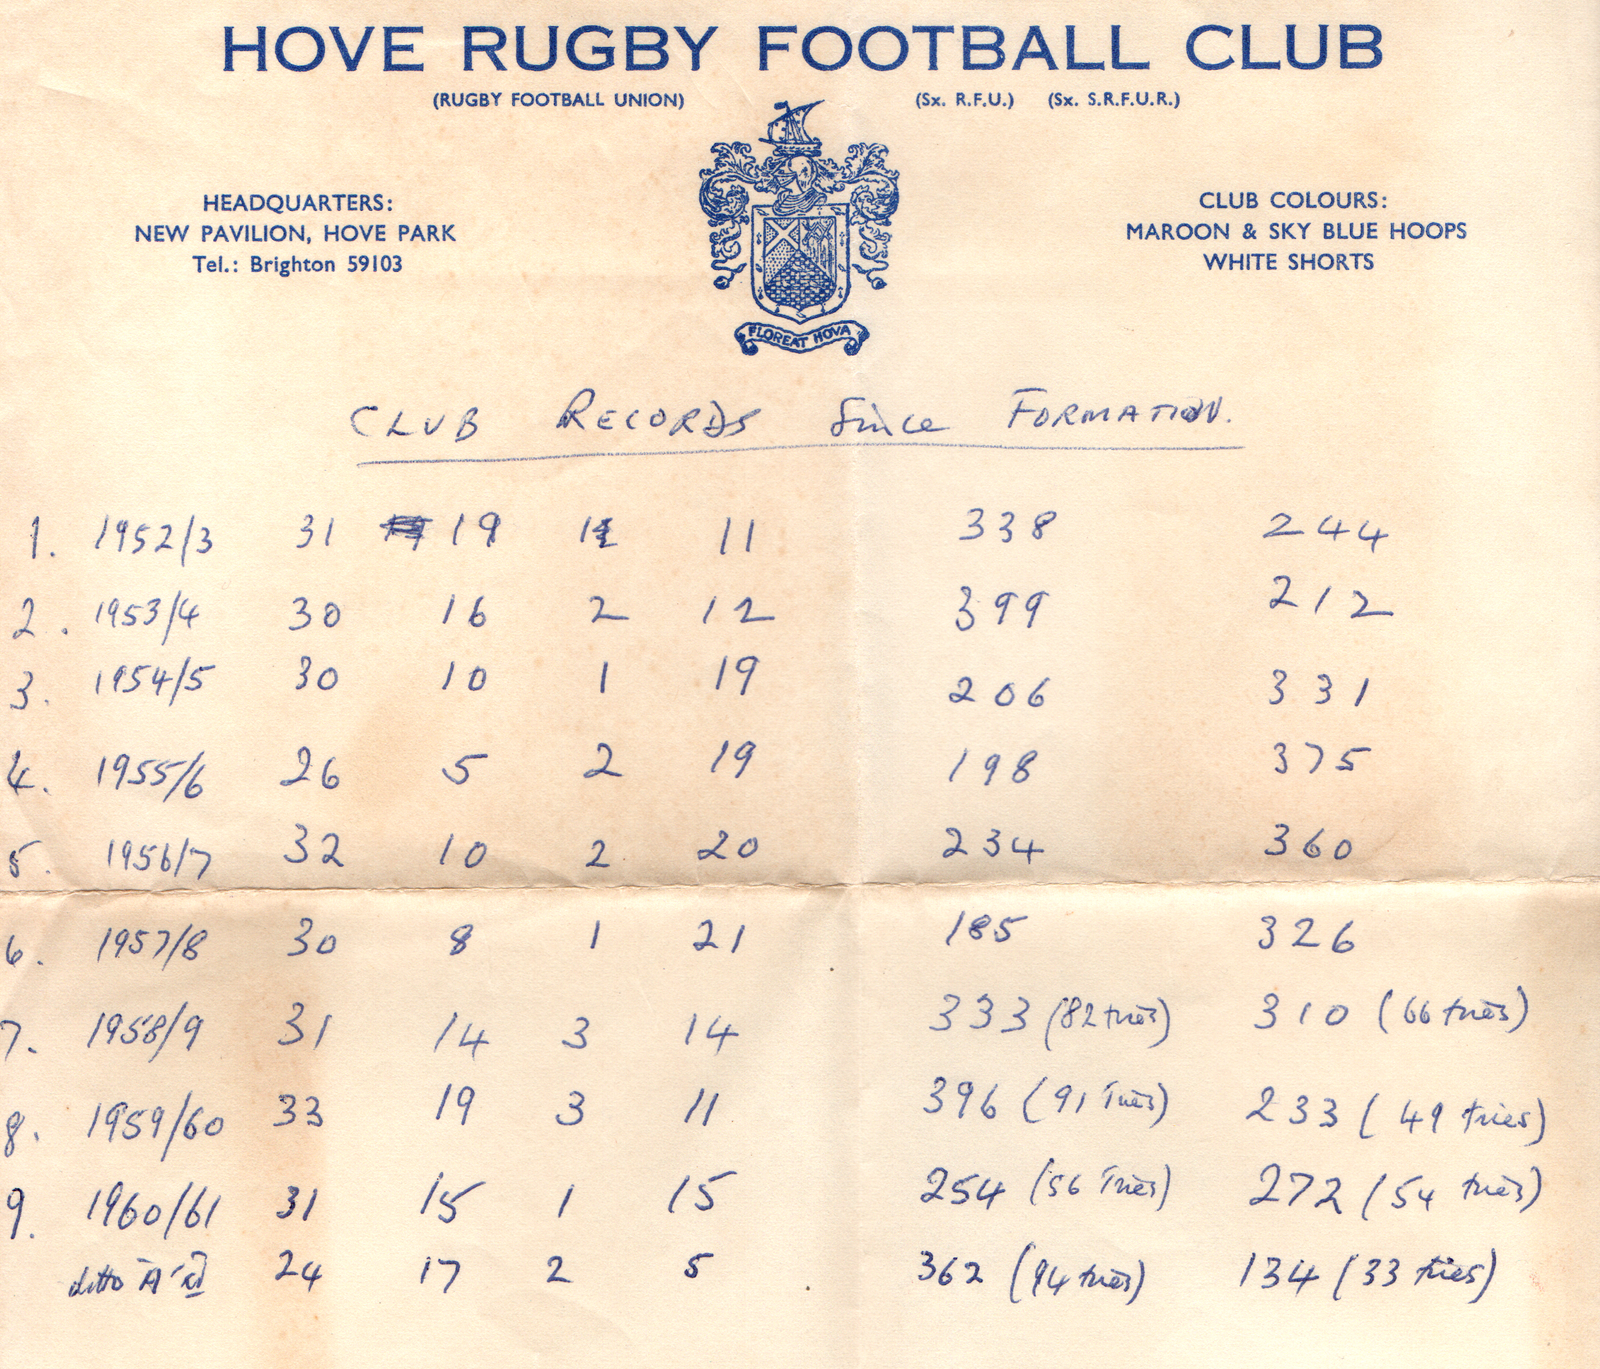 HOVE RUGBY FOOTBALL CLUB
(RUGBY FOOTBALL UNION) (Sx. R.F.U.) (Sx. S.R.F.U.R.)
HEADQUARTERS:
NEW PAVILION, HOVE PARK
Tel.: Brighton 59103
CLUB COLOURS:
MAROON & SKY BLUE HOOPS
WHITE SHORTS
FLOREAT HOVA
CLUB RECORDS Since FORMATION.
1. 1952/3 31 19 1 11 338 244
2. 1953/4 30 16 2 12 399 212
3. 1954/5 30 10 1 19 206 331
4. 1955/6 26 5 2 19 198 375
5. 1956/7 32 10 2 20 234 360
6. 1957/8 30 8 1 21 185 326
7. 1958/9 31 14 3 14 333 (82 tries) 310 (66 tries)
8. 1959/60 33 19 3 11 396 (91 Tries) 233 (49 tries)
9. 1960/61 31 15 1 15 254 (56 Tries) 272 (54 tries)
ditto "A" 24 17 2 5 362 (94 tries) 134 (33 tries)